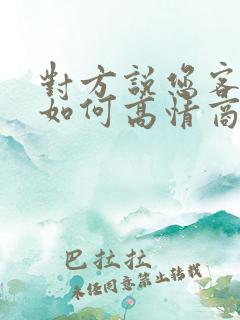 對方說您客
如何高情商
巴拉拉
未经同意禁止转载